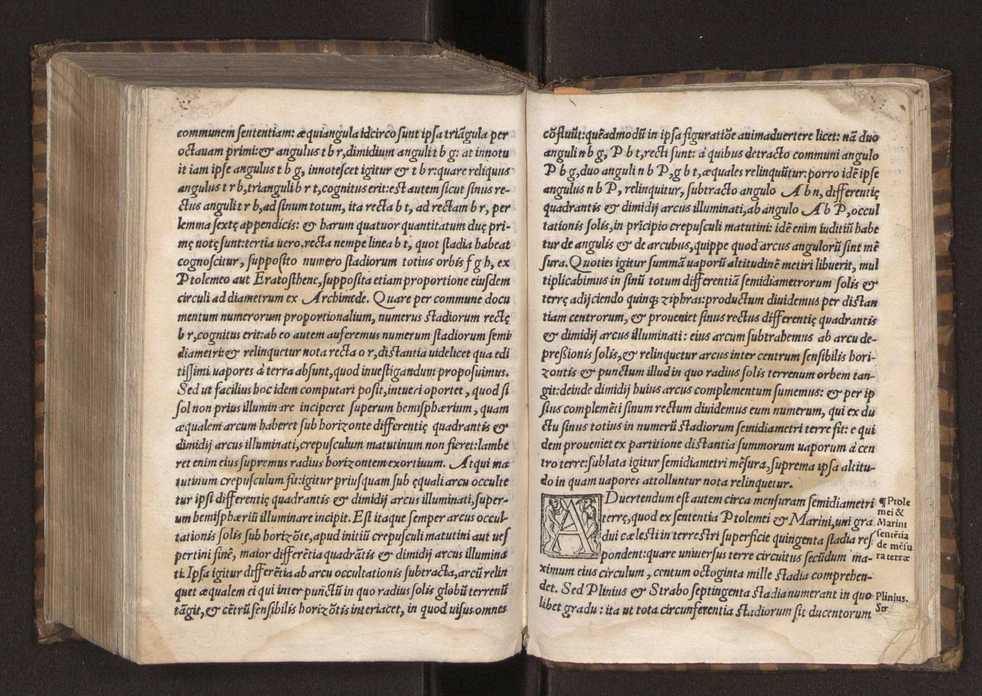 communem sententiam: æquiangula idcirco sunt ipsa triãgula per
octauam primi: & angulus t b r, dimidium anguli t b g: at innotu
it iam ipse angulus t b g, innotescet igitur & t b r: quare reliquus
angulus t r b, trianguli b r t, cognitus erit: est autem sicut sinus re-
ctus anguli t r b, ad sinum totum, ita recta b t, ad rectam b r, per
lemma sextę appendicis: & harum quatuor quantitatum duę pri-
mę notę sunt: tertia uero, recta nempe linea b t, quot stadia habeat
cognoscitur, supposito numero stadiorum totius orbis f g h, ex
Ptolemeo aut Eratosthene, supposita etiam proportione eiusdem
circuli ad diametrum ex Archimede. Quare per commune docu
mentum numerorum proportionalium, numerus stadiorum rectę
b r, cognitus erit: ab eo autem auferemus numerum stadiorum semi
diametri: & relinquetur nota recta o r, distantia uidelicet qua edi
tissimi uapores à terra absunt, quod inuestigandum proposuimus.
Sed ut facilius hoc idem computari possit, intueri oportet, quod si
sol non prius illuminare inciperet superum hemisphærium, quam
æqualem arcum haberet sub horizonte differentię quadrantis &
dimidij arcus illuminati, crepusculum matutinum non fieret: lambe
ret enim eius supremus radius horizontem exortiuum. Atqui ma
tutinum crepusculum fit: igitur priusquam sub ęquali arcu occulte
tur ipsi differentię quadrantis & dimidij arcus illuminati, super-
um hemisphæriũ illuminare incipit. Est itaque semper arcus occul-
tationis solis sub horizõte, apud initiũ crepusculi matutini aut ues
pertini finẽ, maior differẽtia quadrãtis & dimidij arcus illumina
ti. Ipsa igitur differẽtia ab arcu occultationis subtracta, arcũ relin
quet æqualem ei qui inter punctũ in quo radius solis globũ terrenũ
tãgit, & cẽtrũ sensibilis horizõtis interiacet, in quod uisus omnes
cõfluũt: quẽadmodũ in ipsa figuratiõe animaduertere licet: nã duo
anguli n b g, P b t, recti sunt: à quibus detracto communi angulo
P b g, duo anguli n b P, g b t, æquales relinquũtur: porro idẽ ipse
angulus n b P, relinquitur, subtracto angulo A b n, differentię
quadrantis & dimidij arcus illuminati, ab angulo A b P, occul
tationis solis, in prĩcipio crepusculi matutini: idẽ enim iuditiũ habe
tur de angulis & de arcubus, quippe quod arcus angulorũ sint mẽ
sura. Quoties igitur summã uaporũ altitudinẽ metiri libuerit, mul
tiplicabimus in sinũ totum differentiã semidiametrorum solis &
terrę adijciendo quinq; ziphras: productum diuidemus per distan
tiam centrorum, & proueniet sinus rectus differentię quadrantis
& dimidij arcus illuminati: eius arcum subtrahemus ab arcu de-
pressionis solis, & relinquetur arcus inter centrum sensibilis hori-
zontis & punctum illud in quo radius solis terrenum orbem tan-
git: deinde dimidij huius arcus complementum sumemus: & per ip
sius complemẽti sinum rectum diuidemus eum numerum, qui ex du
ctu sinus totius in numerũ stadiorum semidiametri terre fit: e qui
dem proueniet ex partitione distantia summorum uaporum à cen
tro terre: sublata igitur semidiametri mẽsura, suprema ipsa altitu-
do in quam uapores attolluntur nota relinquetur.
ADuertendum est autem circa mensuram semidiametri
terrę, quod ex sententia Ptolemei & Marini, uni gra
dui cælesti in terrestri superficie quingenta stadia res
pondent: quare uniuersus terre circuitus secũdum ma-
ximum eius circulum, centum octoginta mille stadia comprehen-
det. Sed Plinius & Strabo septingenta stadia numerant in quo
libet gradu: ita ut tota circumferentia stadiorum sit ducentorum
¶ Ptole
mei &
Marini
sentẽtia
de mẽsu
ra terræ
Plinius.
Str